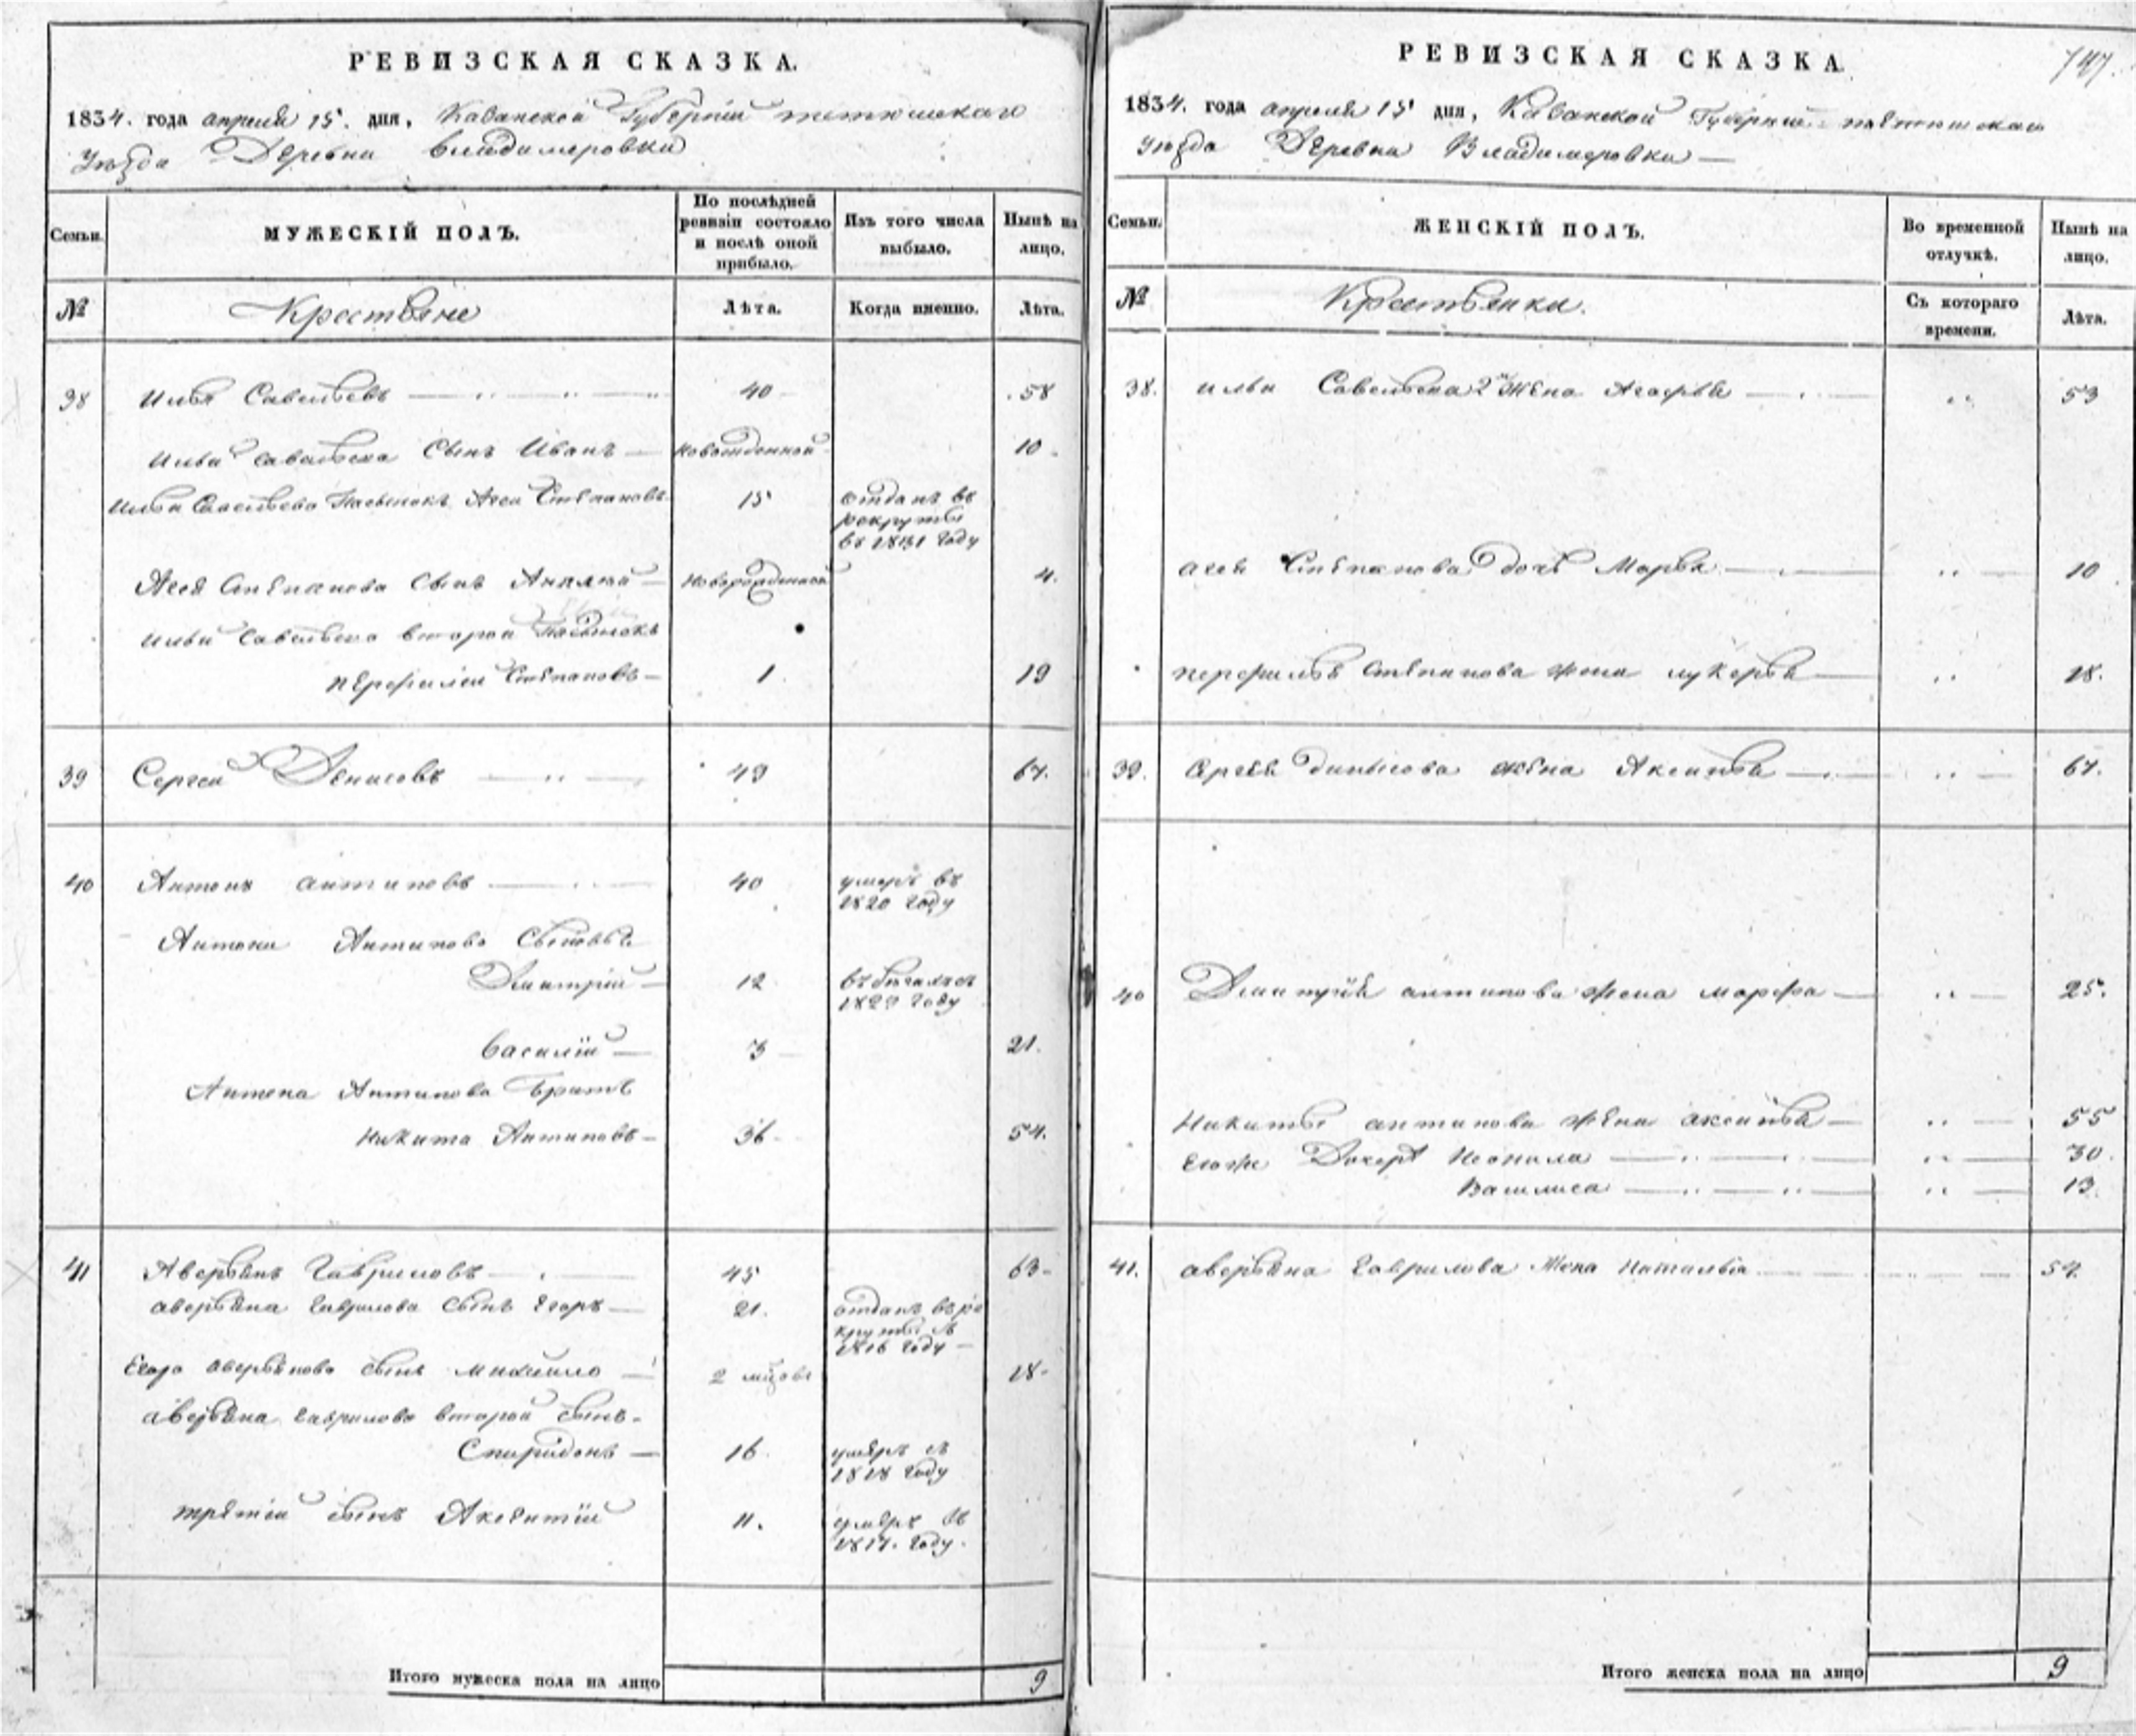 РЕВИЗСКАЯ СКАЗКА.
1834. года апреля 15. дня, Казанской Губернии тетюшскаго
Уезда Деревни Владимеровки
Семьи.
МУЖЕСКІЙ ПОЛЪ.
По послѣдней ревизіи состояло и послѣ оной прибыло.
Изъ того числа выбыло.
Нынѣ на лицо.
№
Крестьяне
Лѣта.
Когда именно.
Лѣта.
38 Илья Савельевъ 40 58
Ильи Савельева Сынъ Иванъ новорожденной 10
Ильи Савельева Пасынокъ Агей Степановъ 15 отданъ въ
рекруты
въ 1831 году
Агея Степанова Сынъ новорожденной 4.
Ильи Савельева второй Пасынокъ
Перфилей Степановъ 1 19
39 Сергей Денисовъ 49 67.
40 Антонъ антиповъ 40 умеръ въ
1820 году
Антона Антипова Сыновья
Дмитрій 12
году
Василій 3 21.
Антона Антипова Братъ
Никита Антиповъ 36 54.
41 Аверьянъ Гавриловъ 45 63
аверьяна Гаврилова Сынъ Егоръ 21. отданъ въ ре
круты въ
1816 году
Егора аверьянова Сынъ михайло 2 18
аверьяна Гаврилова второй сынъ
Спиридонъ 16 умеръ въ
1818 году
третій сынъ Аксентій 11. умеръ въ
1817. году.
Итого мужеска пола на лицо 9
РЕВИЗСКАЯ СКАЗКА.
747.
1834. года апреля 15 дня, Казанской Губернии тетюшскаго
Уезда Деревни Владимеровки
Семьи.
ЖЕНСКІЙ ПОЛЪ.
Во временной отлучкѣ.
Нынѣ на лицо.
№
Крестьянки.
Съ котораго времени.
Лѣта.
38. ильи Савельева 2я Жена Агафья 53
агея Степанова дочь Марья 10
перфилья Степанова жена лукерья 18.
39. Сергея жена Аксинья 67.
40 Дмитрія антипова жена марфа 25.
Никиты антипова жена аксинья 55
Егоже Дочери Неонила 30.
Василиса 13.
41. аверьяна Гаврилова Жена Наталья 54.
Итого женска пола на лицо 9